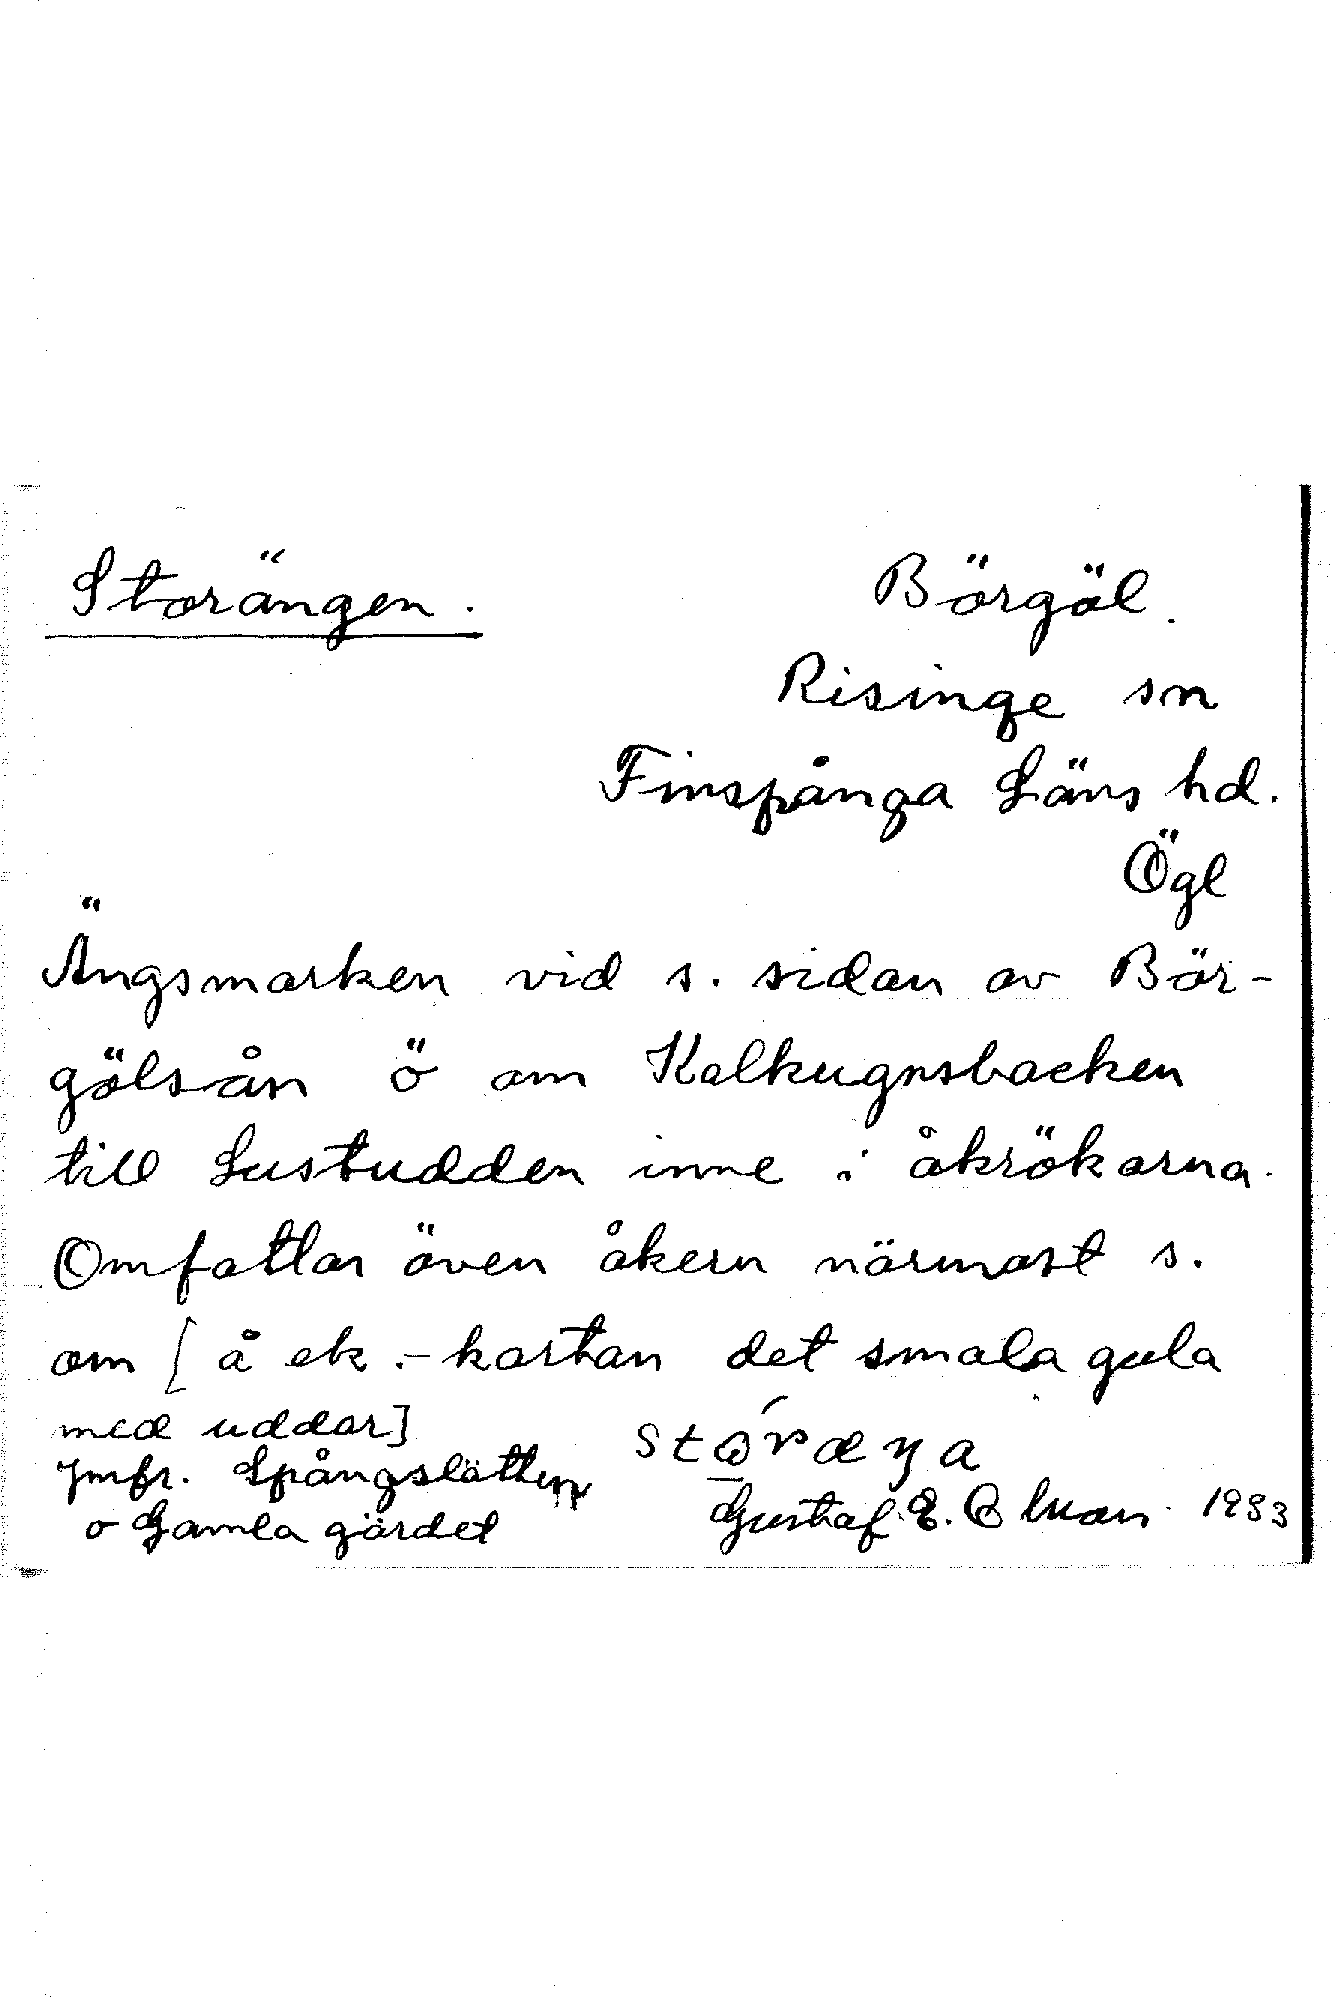 Storängen.
Börgöl.
Risinge sn
Finspånga Läns hd.
Ögl
Ängsmarken vid s. sidan av Bör-
gölsån ö om Kalkugnsbacken
till Lustudden inne i åkrökarna.
Omfattar även åkern närmast s.
om [å ek.-kartan det smala gula
med uddar]
Jmfr. Spångslätten
o Gamla gärdet
Gustaf E. 1933